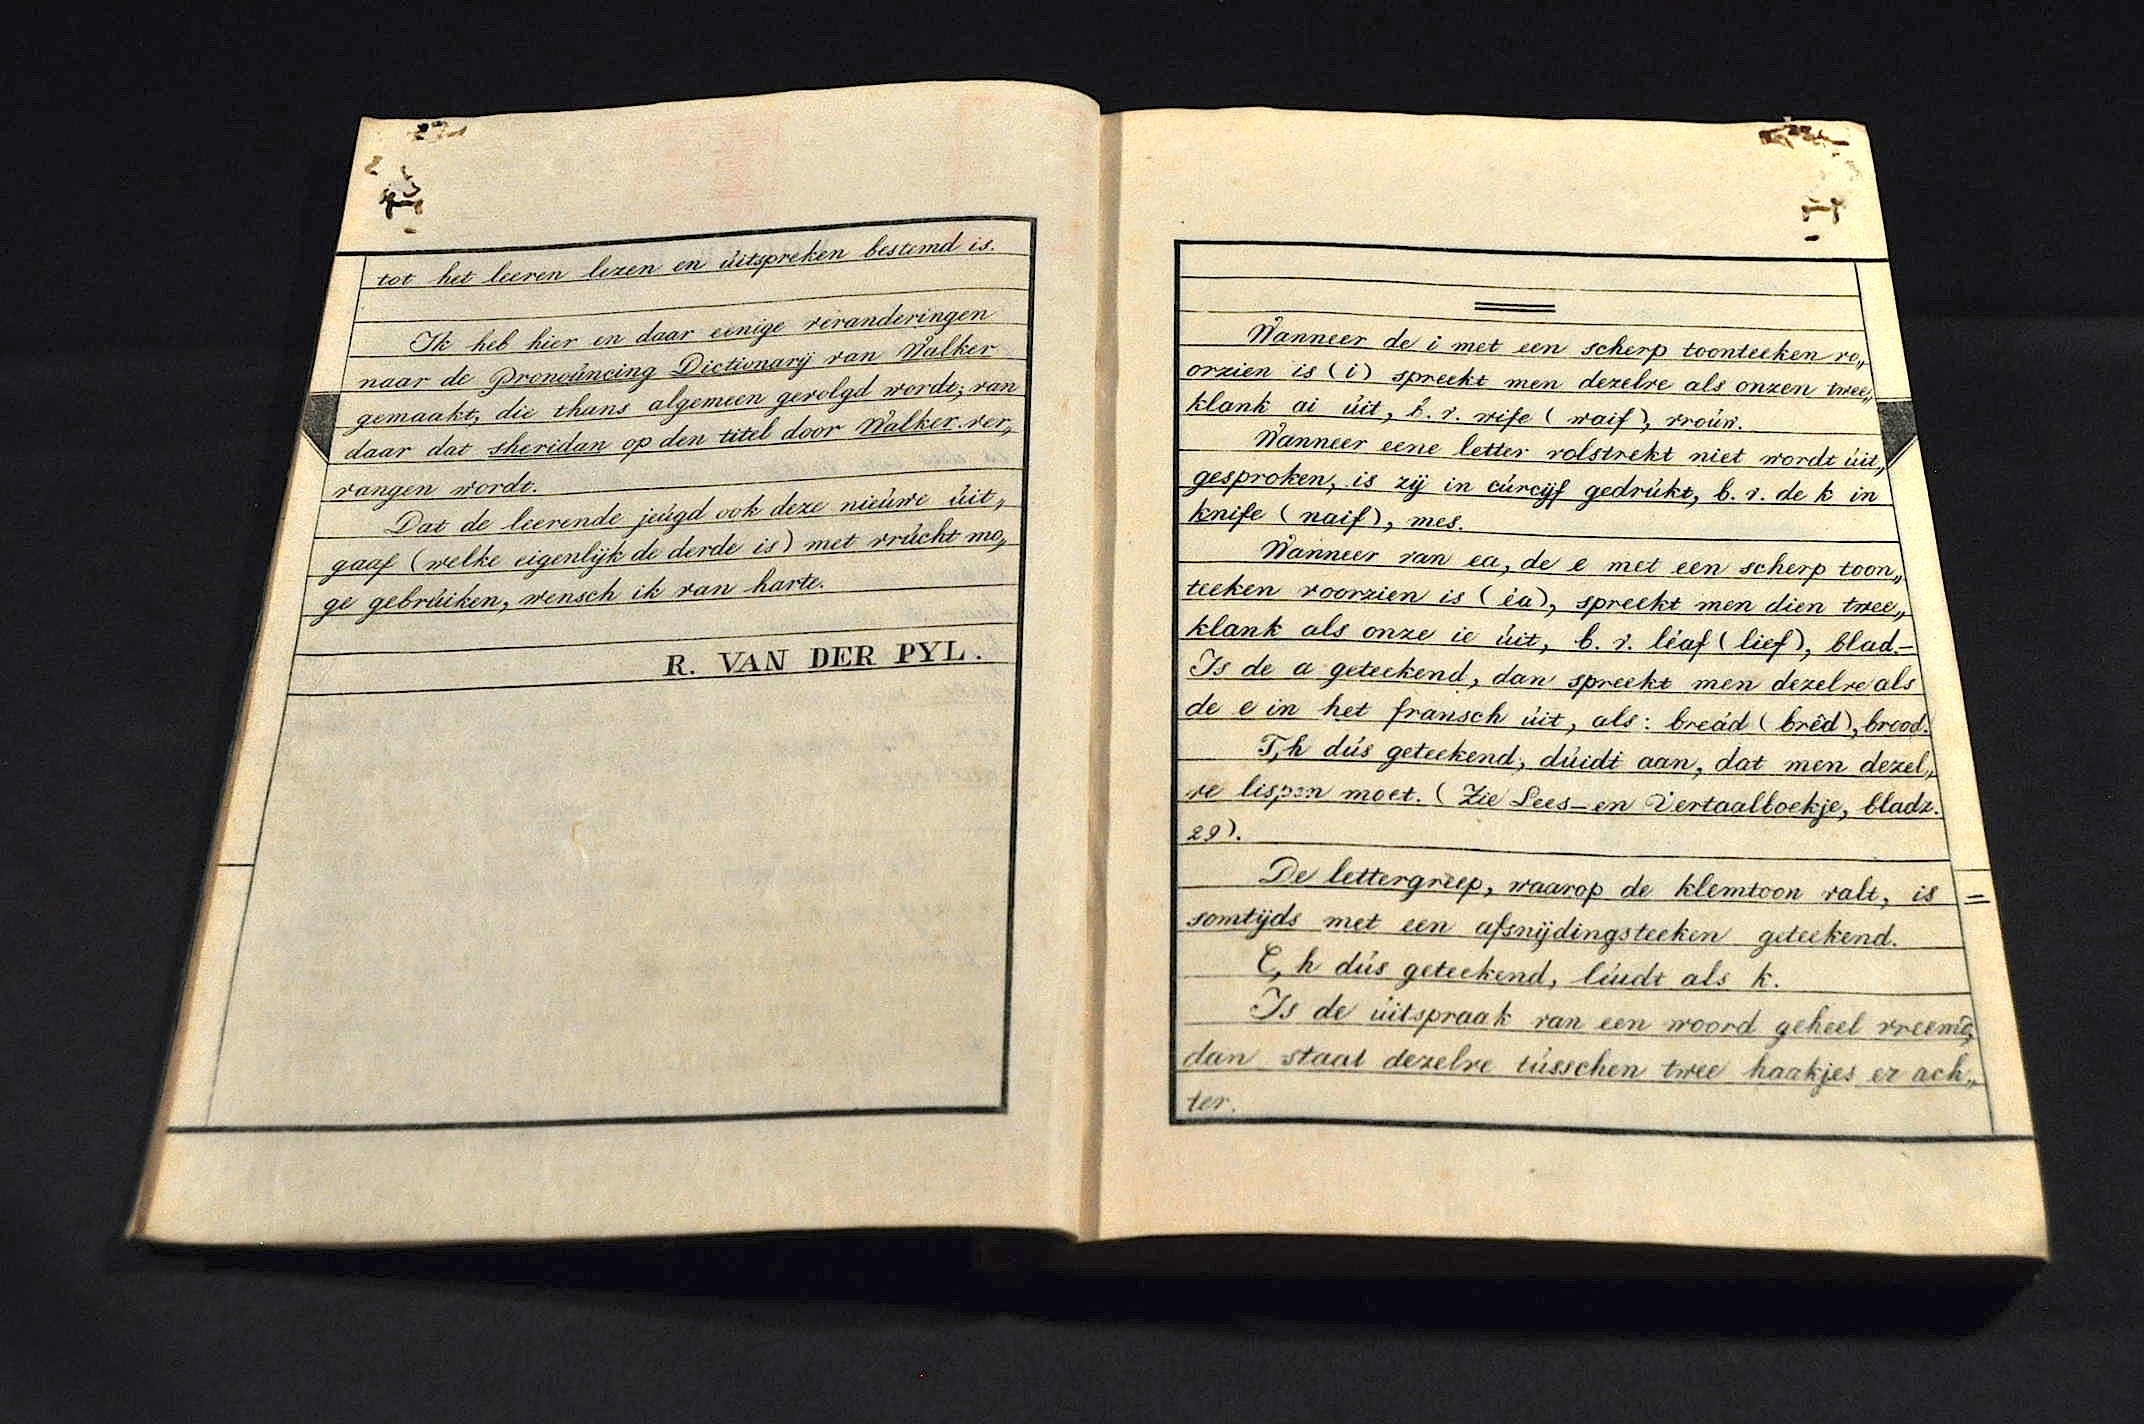 tot het leeren lezen en úitspreken bestemd is.
Ik heb hier en daar eenige veranderingen
naar de Pronoúncing Dictionarÿ van Walker
gemaakt, die thans algemeen gevolgd wordt; van
daar dat sheridan op den titel door Walker ver„
vangen wordt.
Dat de leerende jeúgd ook deze nieúwe úit„
gaaf (welke eigenlijk de derde is) met vrúcht mo„
ge gebrúiken, wensch ik van harte.
R. VAN DER PYL.
Wanneer de i met een scherp toonteeken vo„
orzien is (í) spreekt men dezelve als onzen twee„
klank ai úit, b. v. wife (waif), vroúw.
Wanneer eene letter volstrekt niet wordt úit„
gesproken, is zÿ in cúrcÿf gedrúkt, b. v. de k in
knife (naif), mes.
Wanneer van ea, de e met een scherp toon„
teeken voorzien is (éa), spreekt men dien twee„
klank als onze ie úit, b. v. léaf (lief), blad.–
Is de a geteekend, dan spreekt men dezelve als
de e in het fransch úit, als: breád (brêd), brood.
T,h dús geteekend, dúidt aan, dat men dezel„
ve lispen moet. (Zie Lees–en Vertaalboekje, bladz.
29).
De lettergreep, waarop de klemtoon valt, is =
somtÿds met een afsnÿdingsteeken geteekend.
C,h dús geteekend, lúidt als k.
Is de úitspraak van een woord geheel vreemd,
dan staat dezelve tússchen twee haakjes er ach„
ter.